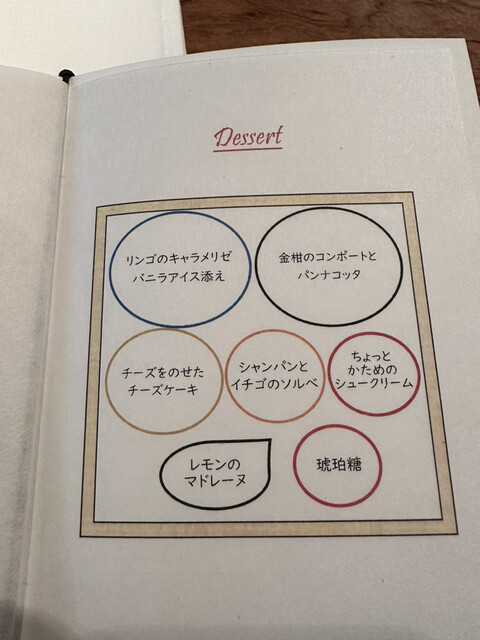 Dessert
リンゴのキャラメリゼ
バニラアイス添え
金柑のコンポートと
パンナコッタ
チーズをのせた
チーズケーキ
シャンパンと
イチゴのソルベ
ちょっと
かための
シュークリーム
レモンの
マドレーヌ
琥珀糖